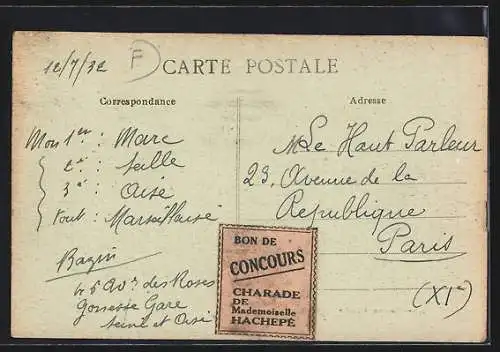 12/7/32
F
CARTE POSTALE
Correspondance
Mon 1er : Marc
2e : seille
3e : Oise
Tout : Marseillaise
Bazin
45 Avr des Roses
Goussainville Gare
Seine et Oise
Adresse
M Le Haut Parleur
23, Avenue de la
République
Paris
(XIe)
BON DE
CONCOURS
CHARADE
DE
Mademoiselle
HACHEPÉ